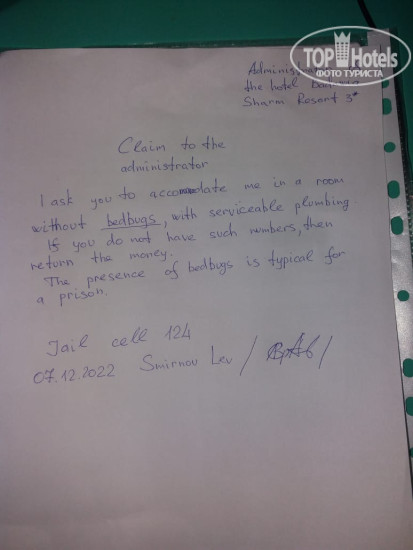 TOP Hotels
ФОТО ТУРИСТА
the hotel
Sharm Resort 3*
Claim to the
administrator
I ask you to accomodate me in a room
without bedbugs, with serviceable plumbing
If you do not have such numbers, then
return the money.
The presence of bedbugs is typical for
a prison.
Jail cell 124
07.12.2022 Smirnov Lev / /